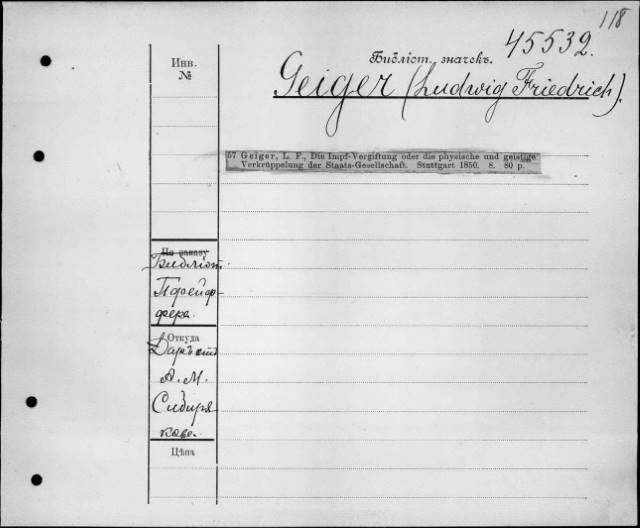 118
45532.
Инв.
№
Библіот. значекъ.
Geiger (Ludwig Friedrich).
57 Geiger, L. F., Die Impf-Vergiftung oder die physische und geistige
Verkrüppelung der Staats-Gesellschaft. Stuttgart 1850. 8. 80 p.
По заказу
Библіот.
Пфейф-
фера.
Откуда
Даръ отъ
А. М.
Сибиря
кова.
Цѣна